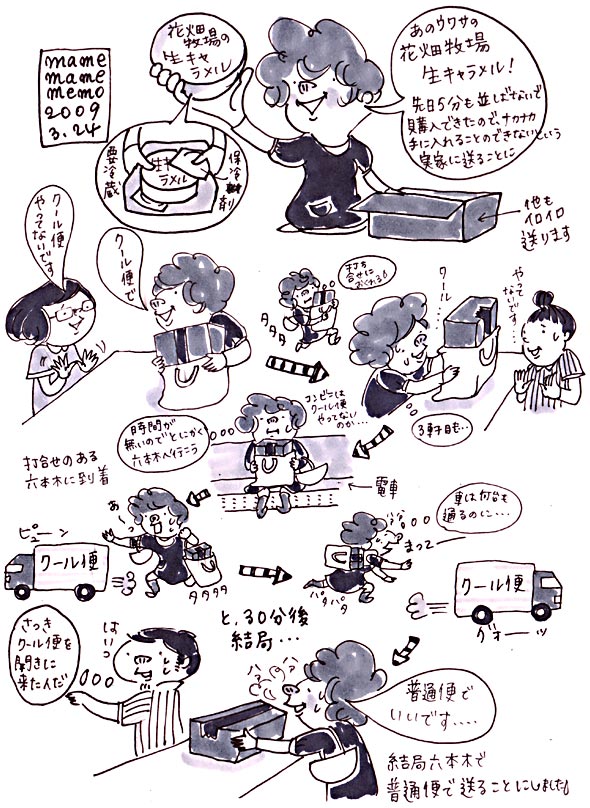 mame
mame
memo
2009
3.24
花畑
牧場の
生キャ
ラメル
要冷蔵
生キャ
ラメル
保冷剤
あのウワサの
花畑牧場
生キャラメル！
先日5分も並ばないで
購入できたので、ナカナカ
手に入れることのできないという
実家に送ることに
他も
イロイロ
送ります
クール便
やってないです
クール便で
打ち
合せに
おくれる！
タタタ
クール…
やって
ないです…
3軒目も…
コンビニは
クール便
やってない
のか…
時間が
無いのでとにかく
六本木へ行こう
電車
打合せのある
六本木に到着
ピューン
クール便
あっ
タタタタ
車は何台も
通るのに…
ハァハァ
まって
パタパタ
クール便
グォーッ
と、30分後
結局…
さっき
クール便を
聞きに
来た人だ
はいっ
ハァハァ
普通便で
いいです....
結局六本木で
普通便で送ることにしました